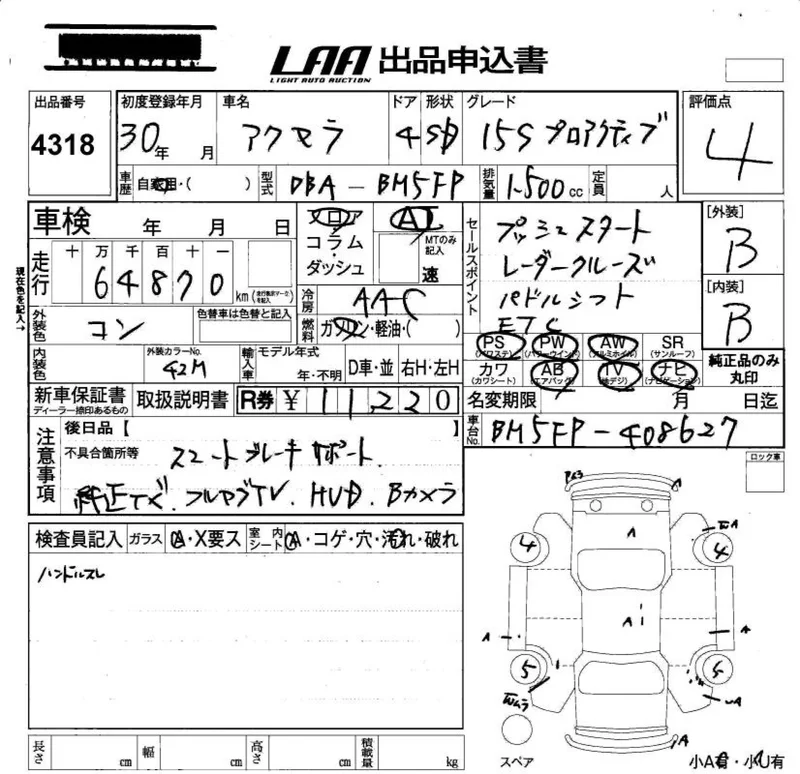 LAA 出品申込書
LIGHT AUTO AUCTION
出品番号 初度登録年月 車名 ドア 形状 グレード 評価点
4318 30年 月 アクセラ 4 SD 15S プロアクティブ 4
車歴 自家用・( ) 型式 DBA-BM5FP 排気量 1500cc 定員 人
車検 年 月 日 フロア・コラム・ダッシュ AT MTのみ記入 速
セールスポイント プッシュスタート
レーダークルーズ
パドルシフト
ETC
[外装] B
[内装] B
純正品のみ丸印
現在色を記入→
走行 十 万 千 百 十 一
64870 km (走行距離マークを記入)
冷房 AAC
外装色 コン 色替車は色替と記入 燃料 ガソリン・軽油・( )
内装色 外装カラーNo. 42M 輸入車 モデル年式 年・不明 D車・並 右H・左H
PS (パワステ) PW (パワーウインド) AW (アルミホイル) SR (サンルーフ)
カワ (カワシート) AB (エアバッグ) TV (地デジ) ナビ (ナビゲーション)
新車保証書 ディーラー捺印あるもの 取扱説明書 R券 ¥ 11220
名変期限 月 日迄
車台No. BM5FP-408627
注意事項 後日品【 】
不具合箇所等 スマートブレーキサポート
純正ナビ. フルセグTV. HUD. Bカメラ
ロック車
検査員記入 ガラス A・X要ス 室内シート A・コゲ・穴・汚れ・破れ
ハンドルスレ
A
A
4 4
A
A A
5 5
A
スペア
小A有・小U有
長さ cm 幅 cm 高さ cm 積載量 kg